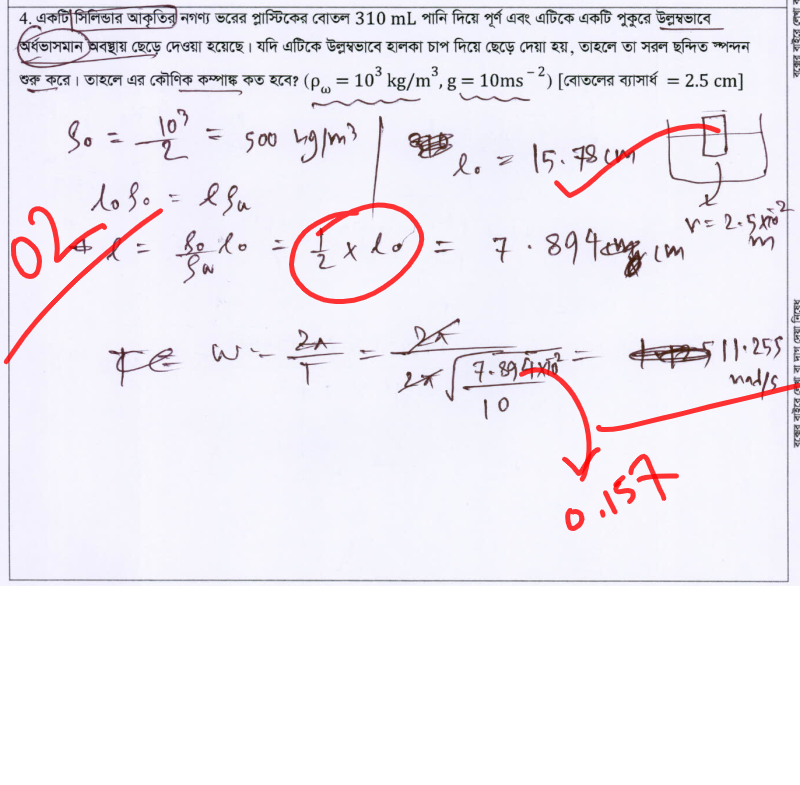 4. একটি সিলিন্ডার আকৃতির নগণ্য ভরের প্লাস্টিকের বোতল 310 mL পানি দিয়ে পূর্ণ এবং এটিকে একটি পুকুরে উলম্বভাবে
অর্ধভাসমান অবস্থায় ছেড়ে দেওয়া হয়েছে। যদি এটিকে উলম্বভাবে হালকা চাপ দিয়ে ছেড়ে দেয়া হয়, তাহলে তা সরল ছন্দিত স্পন্দন
শুরু করে। তাহলে এর কৌণিক কম্পাঙ্ক কত হবে? (ρω = 10³ kg/m³, g = 10ms⁻²) [বোতলের ব্যাসার্ধ = 2.5 cm]
ρ₀ = 10³/2 = 500 kg/m³
l₀ = 15.78 cm
r = 2.5×10⁻² m
l₀ρ₀ = lρω
02
l = ρ₀/ρω l₀ = 1/2 × l₀ = 7.894 cm
ω = 2π/T = 2π/2π√(7.894×10⁻²/10) = 11.255 rad/s
0.157